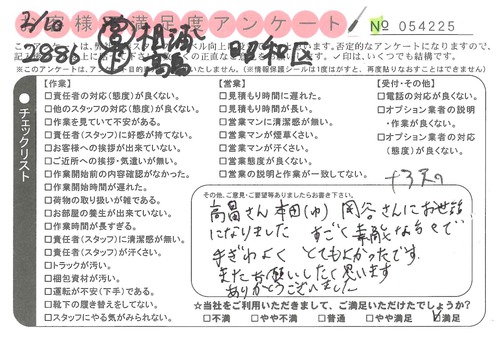 お客様満足度アンケート
№ 054225
2886
昭和区
※このアンケートは、
(※情報保護シールは1度はがすと、再度貼りなおすことはできません)
チェックリスト
【作業】
□責任者の対応(態度)が良くない。
□他のスタッフの対応(態度)が良くない。
□作業を見ていて不安がある。
□責任者(スタッフ)に好感が持てない。
□お客様への挨拶が出来ていない。
□ご近所への挨拶・気遣いが無い。
□作業開始前の内容確認がなかった。
□作業開始時間が遅れた。
□荷物の取り扱いが雑である。
□お部屋の養生が出来ていない。
□作業時間が長すぎる。
□責任者(スタッフ)に清潔感が無い。
□責任者(スタッフ)が汗くさい。
□トラックが汚い。
□梱包資材が汚い。
□運転が不安(下手)である。
□靴下の履き替えをしてない。
□スタッフにやる気がみられない。
【営業】
□見積もり時間に遅れた。
□見積もり時間が長い。
□営業マンに清潔感が無い。
□営業マンが煙草くさい。
□営業マンが汗くさい。
□営業態度が良くない。
□営業の説明と作業が一致してない。
【受付・その他】
□電話の対応が良くない。
□オプション業者の説明
・作業が良くない。
□オプション業者の対応
(態度)が良くない。
その他、ご意見・ご要望等ありましたらお書き下さい。
高畠さん 本田(ゆ) 岡谷さんにお世話
になりました すごく素敵な方々で
手ぎわよく とてもよかったです。
またお願いしたく思います
ありがとうございました
☆当社をご利用いただきまして、ご満足いただけたでしょうか?
□不満 □やや不満 □普通 □やや満足 ☑満足